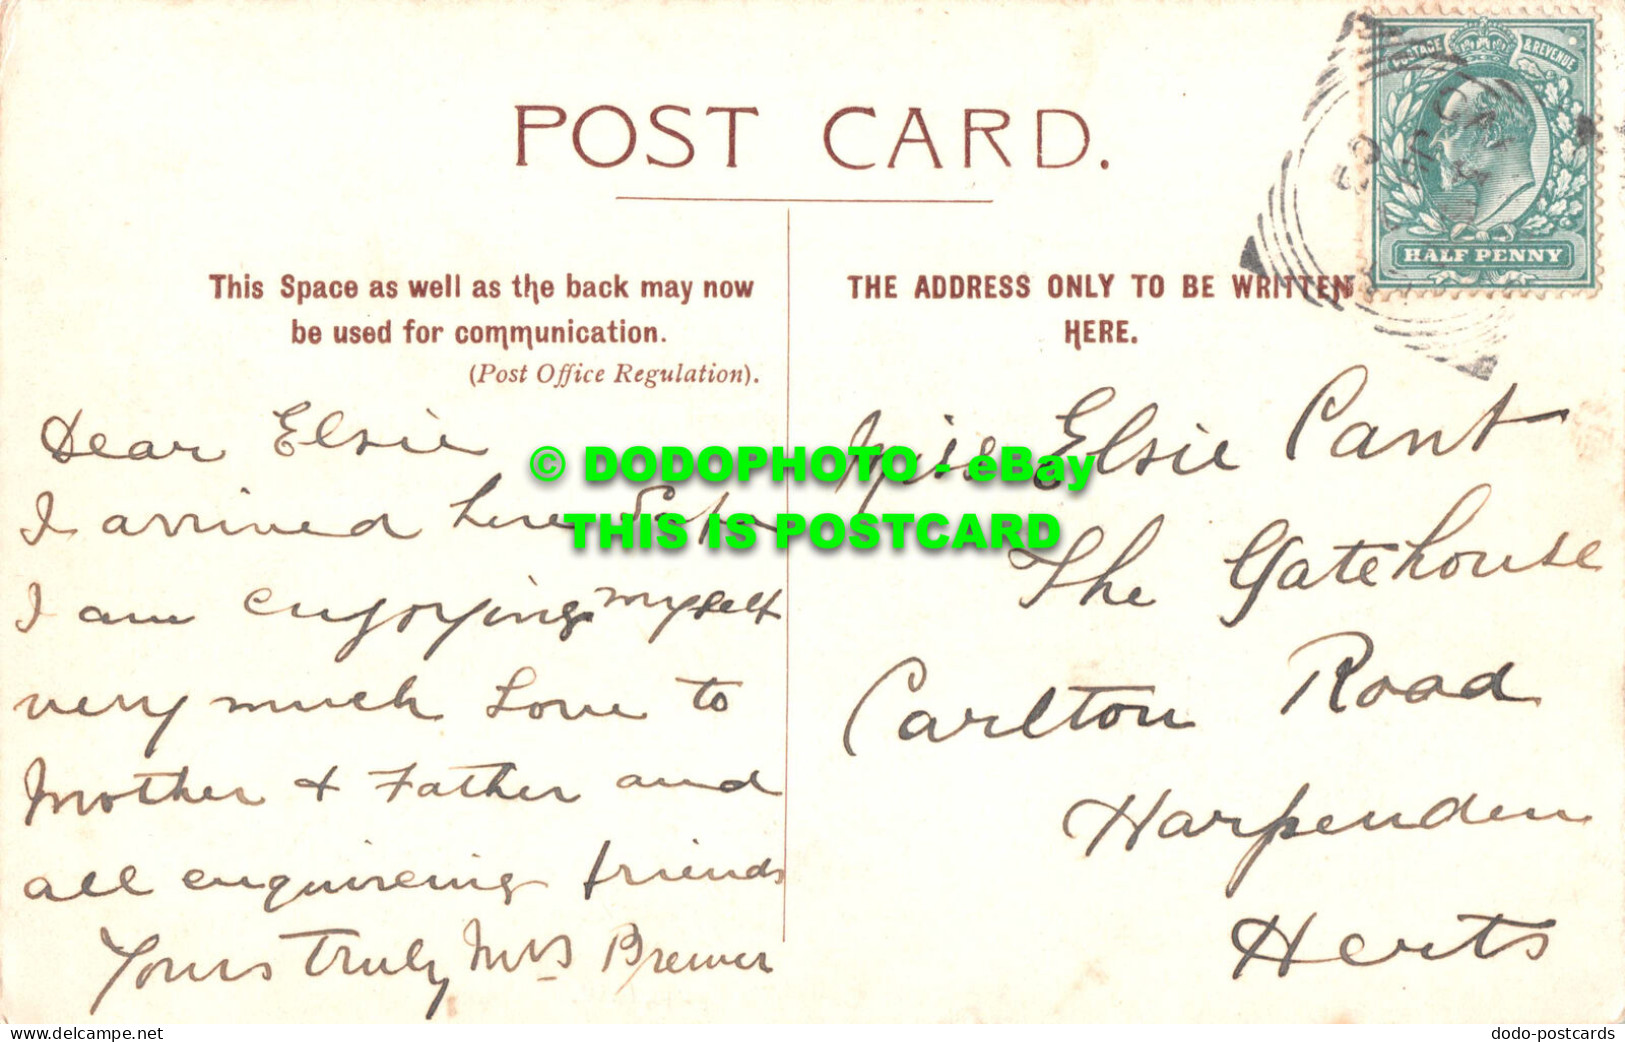 POST CARD.
This Space as well as the back may now
be used for communication.
(Post Office Regulation).
THE ADDRESS ONLY TO BE WRITTEN
HERE.
POSTAGE & REVENUE
HALF PENNY
Dear Elsie
I arrived here Safe
I am enjoying myself
very much Love to
Mother & Father and
all enquireing friends
Yours Truly Mrs Brewer
Miss Elsie Cant
The Gatehouse
Carlton Road
Harpenden
Herts
© DODOPHOTO - eBay
THIS IS POSTCARD
www.delcampe.net
dodo-postcards